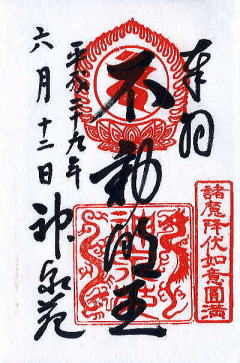 奉拝
不動明王
平成二十九年
六月十二日
神泉苑
諸魔降伏如意圓満